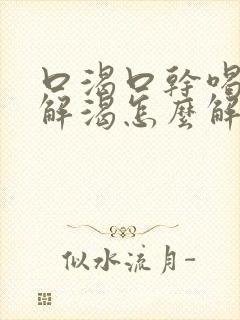 口渴口幹喝
解渴怎麼解
似水流月-